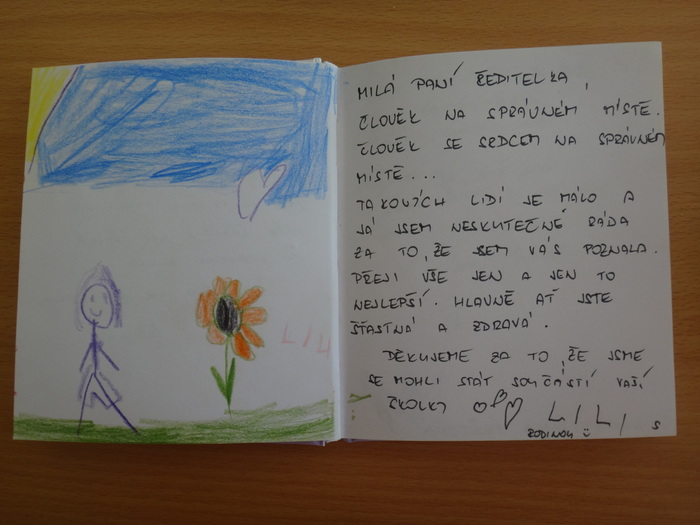 LILI
MILÁ PANÍ ŘEDITELKA,
ČLOVĚK NA SPRÁVNÉM MÍSTĚ.
ČLOVĚK SE SRDCEM NA SPRÁVNÉM
MÍSTĚ...
TAKOVÝCH LIDÍ JE MÁLO A
JÁ JSEM NESKUTEČNĚ RÁDA
ZA TO, ŽE JSEM VÁS POZNALA.
PŘEJI VŠE JEN A JEN TO
NEJLEPŠÍ. HLAVNĚ AŤ JSTE
ŠŤASTNÁ A ZDRAVÁ.
DĚKUJEME ZA TO, ŽE JSME
SE MOHLI STÁT SOUČÁSTÍ VAŠÍ
ŠKOLKY LILI S
RODINOU